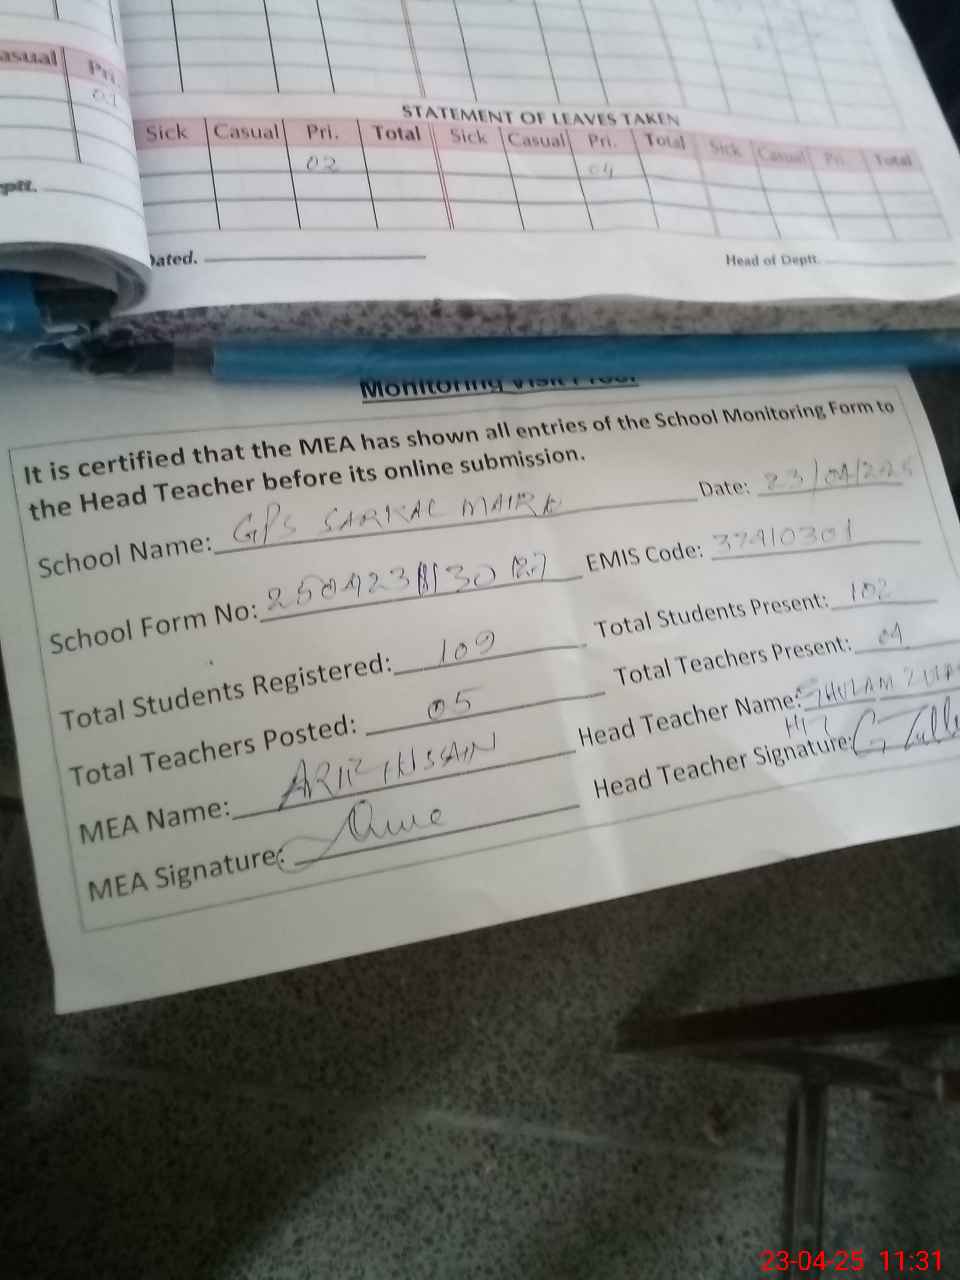 asual Pri
01
STATEMENT OF LEAVES TAKEN
Sick Casual Pri. Total Sick Casual Pri. Total Sick Casual Pri. Total
02 04
eptt.
Dated. Head of Deptt.
Monitoring Visit Proof
It is certified that the MEA has shown all entries of the School Monitoring Form to
the Head Teacher before its online submission.
School Name: GPS SARKAL MAIRA Date: 23/04/2025
School Form No: EMIS Code: 37410301
Total Students Registered: 109 Total Students Present: 102
Total Teachers Posted: 05 Total Teachers Present: 04
MEA Name: Head Teacher Name: GHULAM
MEA Signature: Head Teacher Signature:
23-04-25 11:31